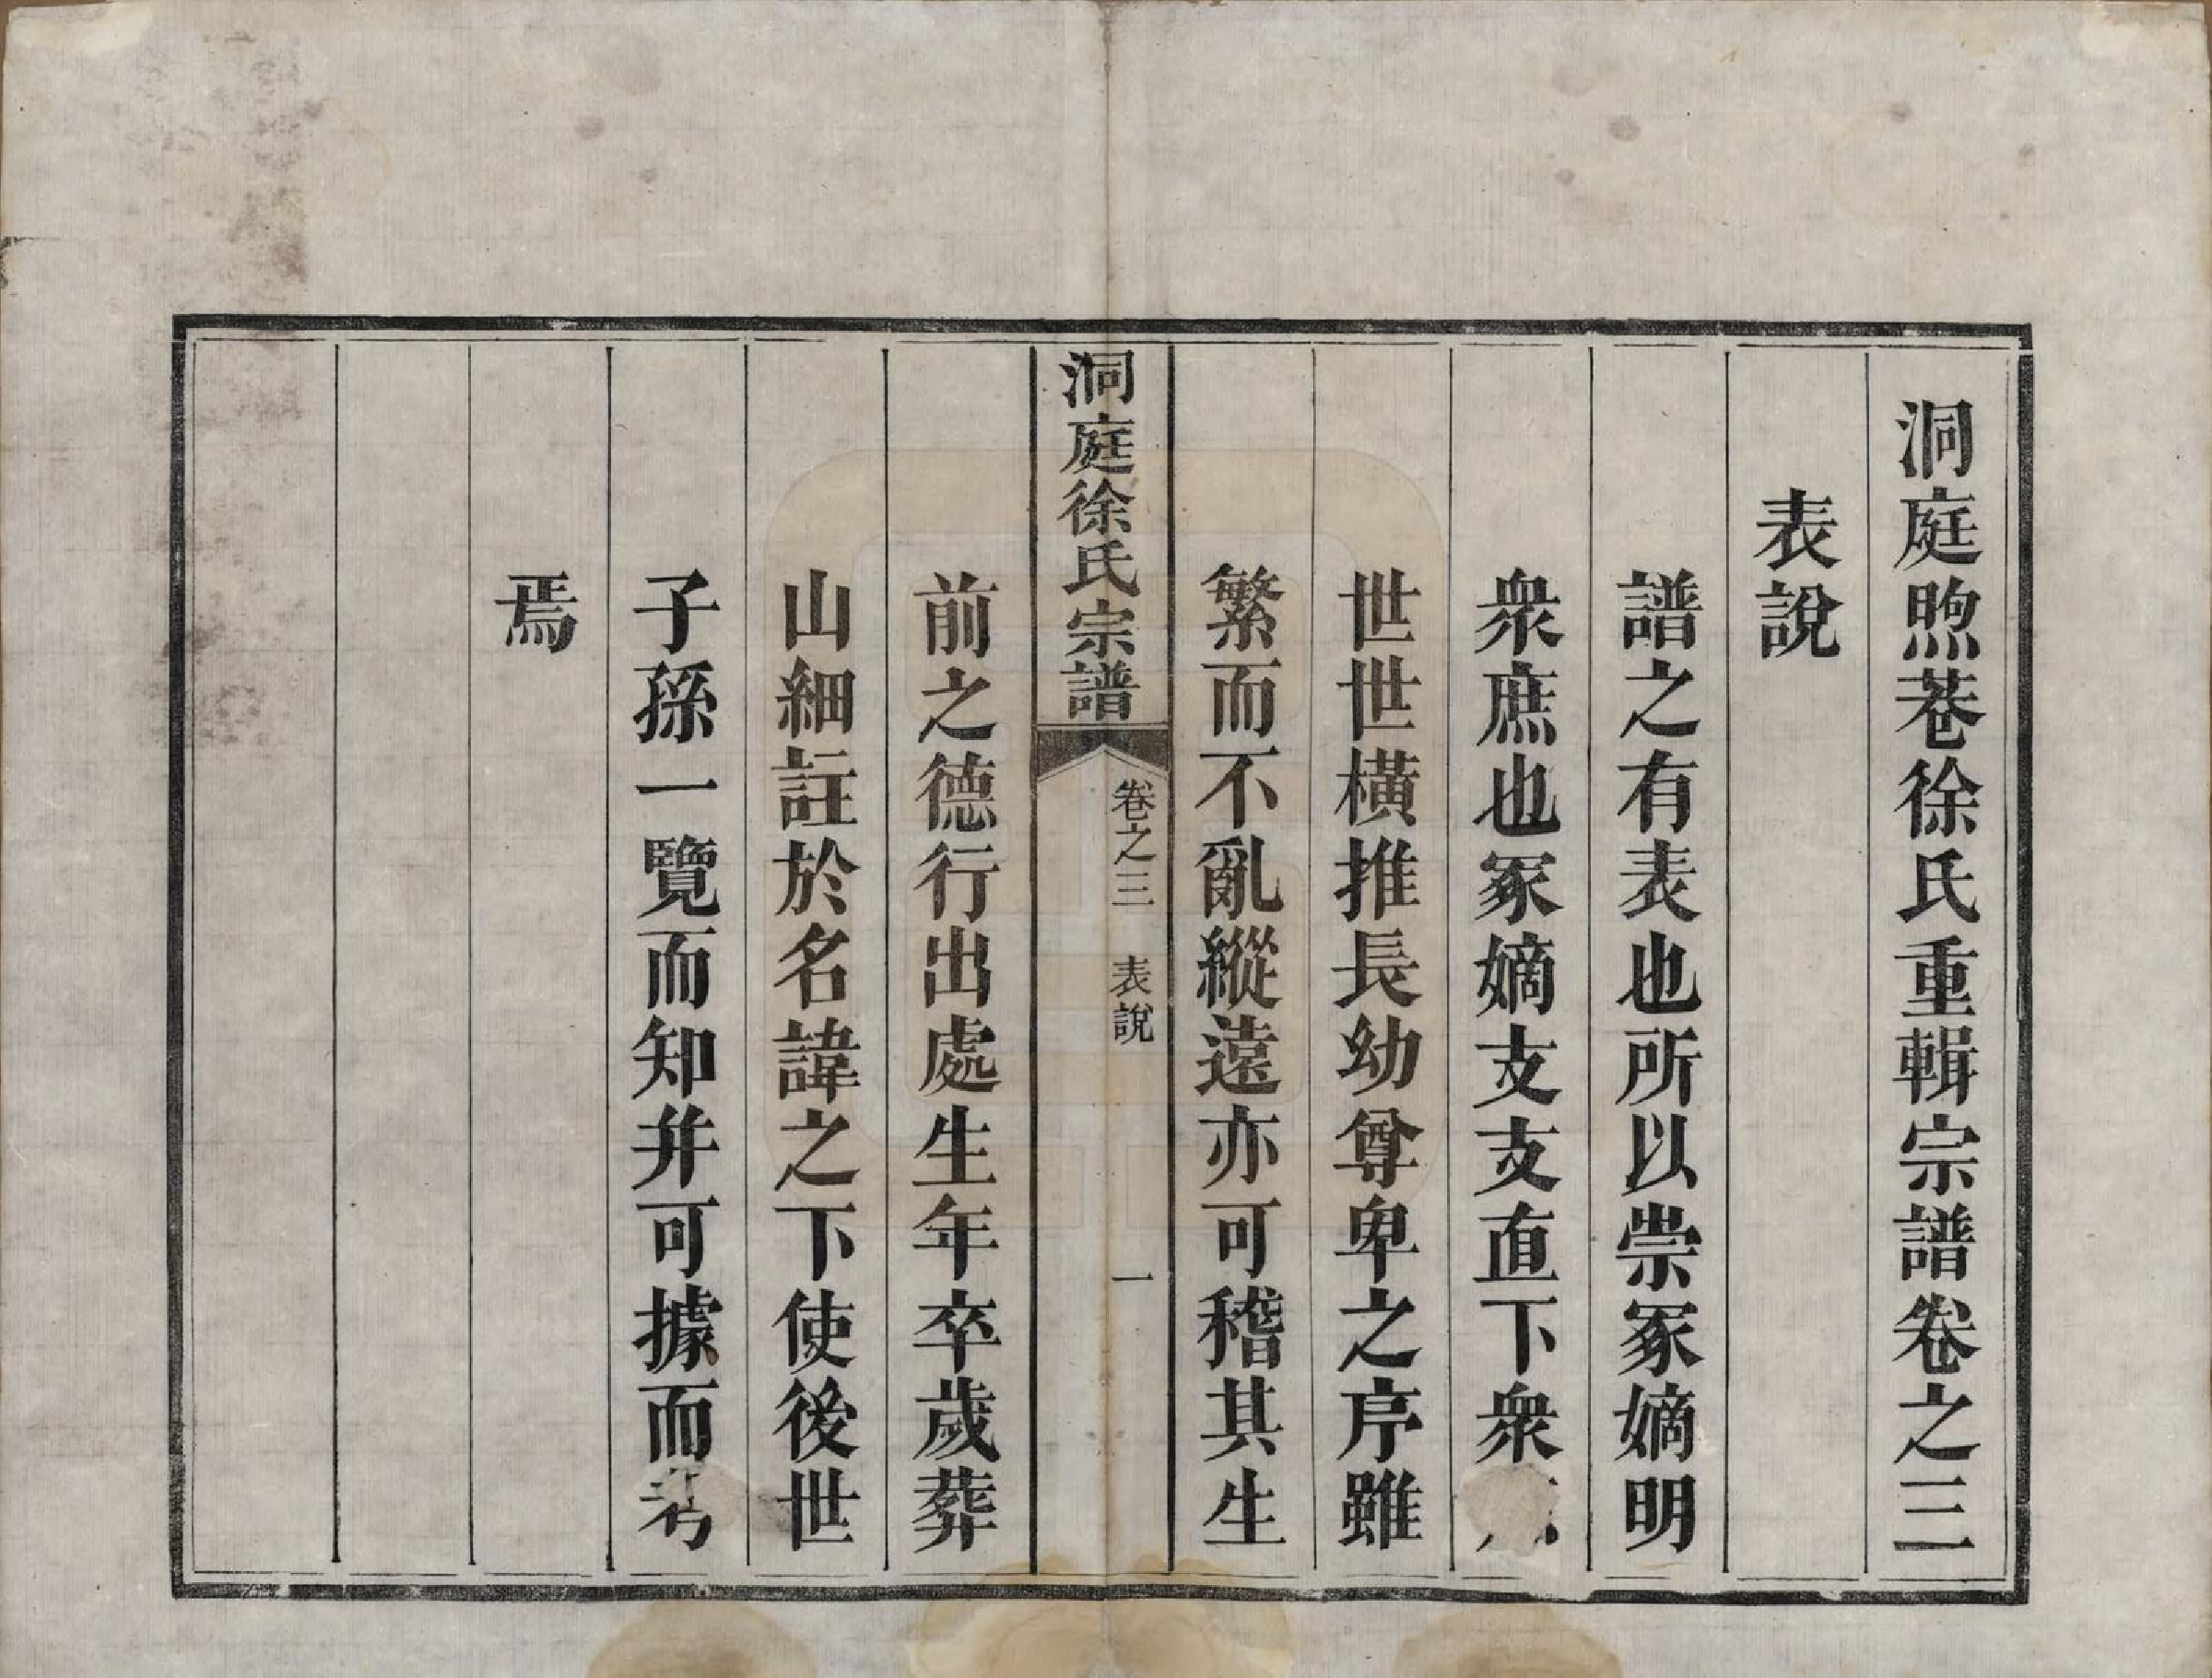 洞庭煦巷徐氏重輯宗譜卷之三
表說
譜之有表也所以崇冢嫡明
衆庶也冢嫡支支直下衆
世世橫推長幼尊卑之序雖
繁而不亂縱遠亦可稽其生
洞庭徐氏宗譜
卷之三 表說
一
前之德行出處生年卒歲葬
山細註於名諱之下使後世
子孫一覽而知并可據而考
焉